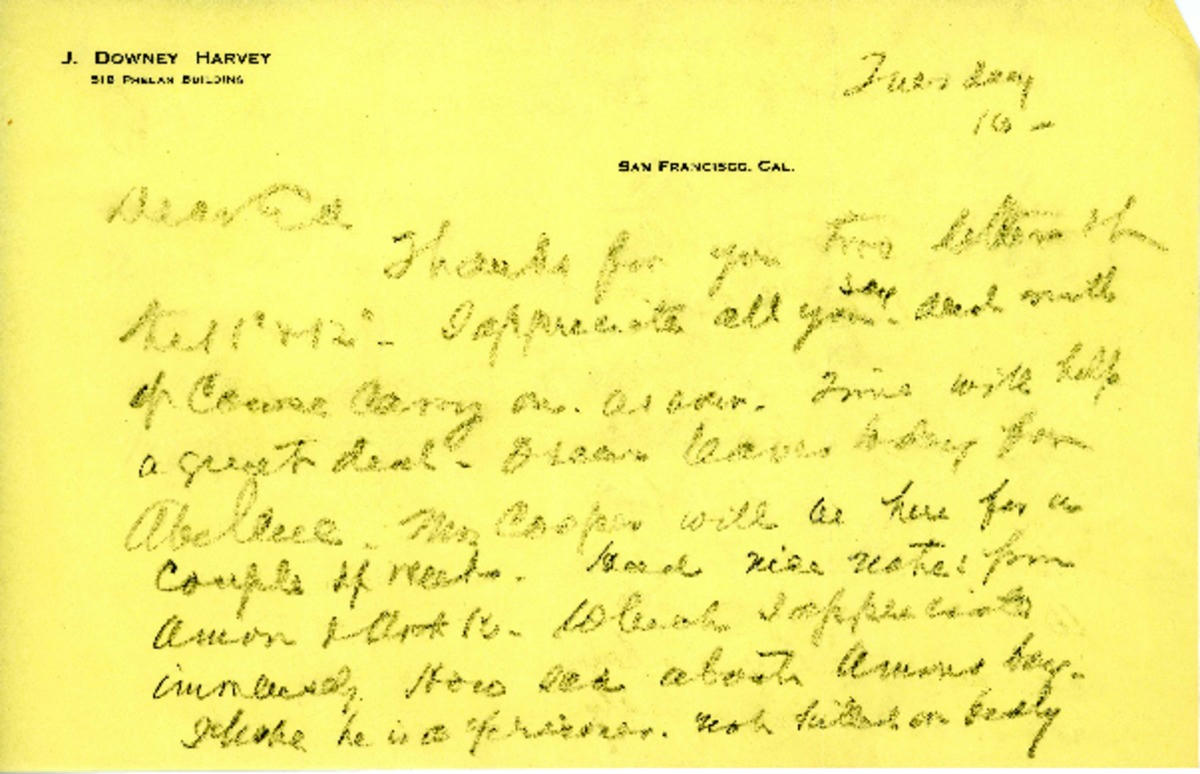 J. DOWNEY HARVEY
518 PHELAN BUILDING
Tuesday
16 -
SAN FRANCISCO, CAL.
Dear Ed
Thanks for you two letters
the 11" & 12" - I appreciate all you say - and will
of course carry on. as ever. Time will help
a great deal - leaves today for
Abilene - Mrs Cooper will be here for a
couple of weeks. Had nice notes from
Amon & - Which I appreciate
immensely. How sad about Amons boy -
I hope he is a prisoner. not killed or badly